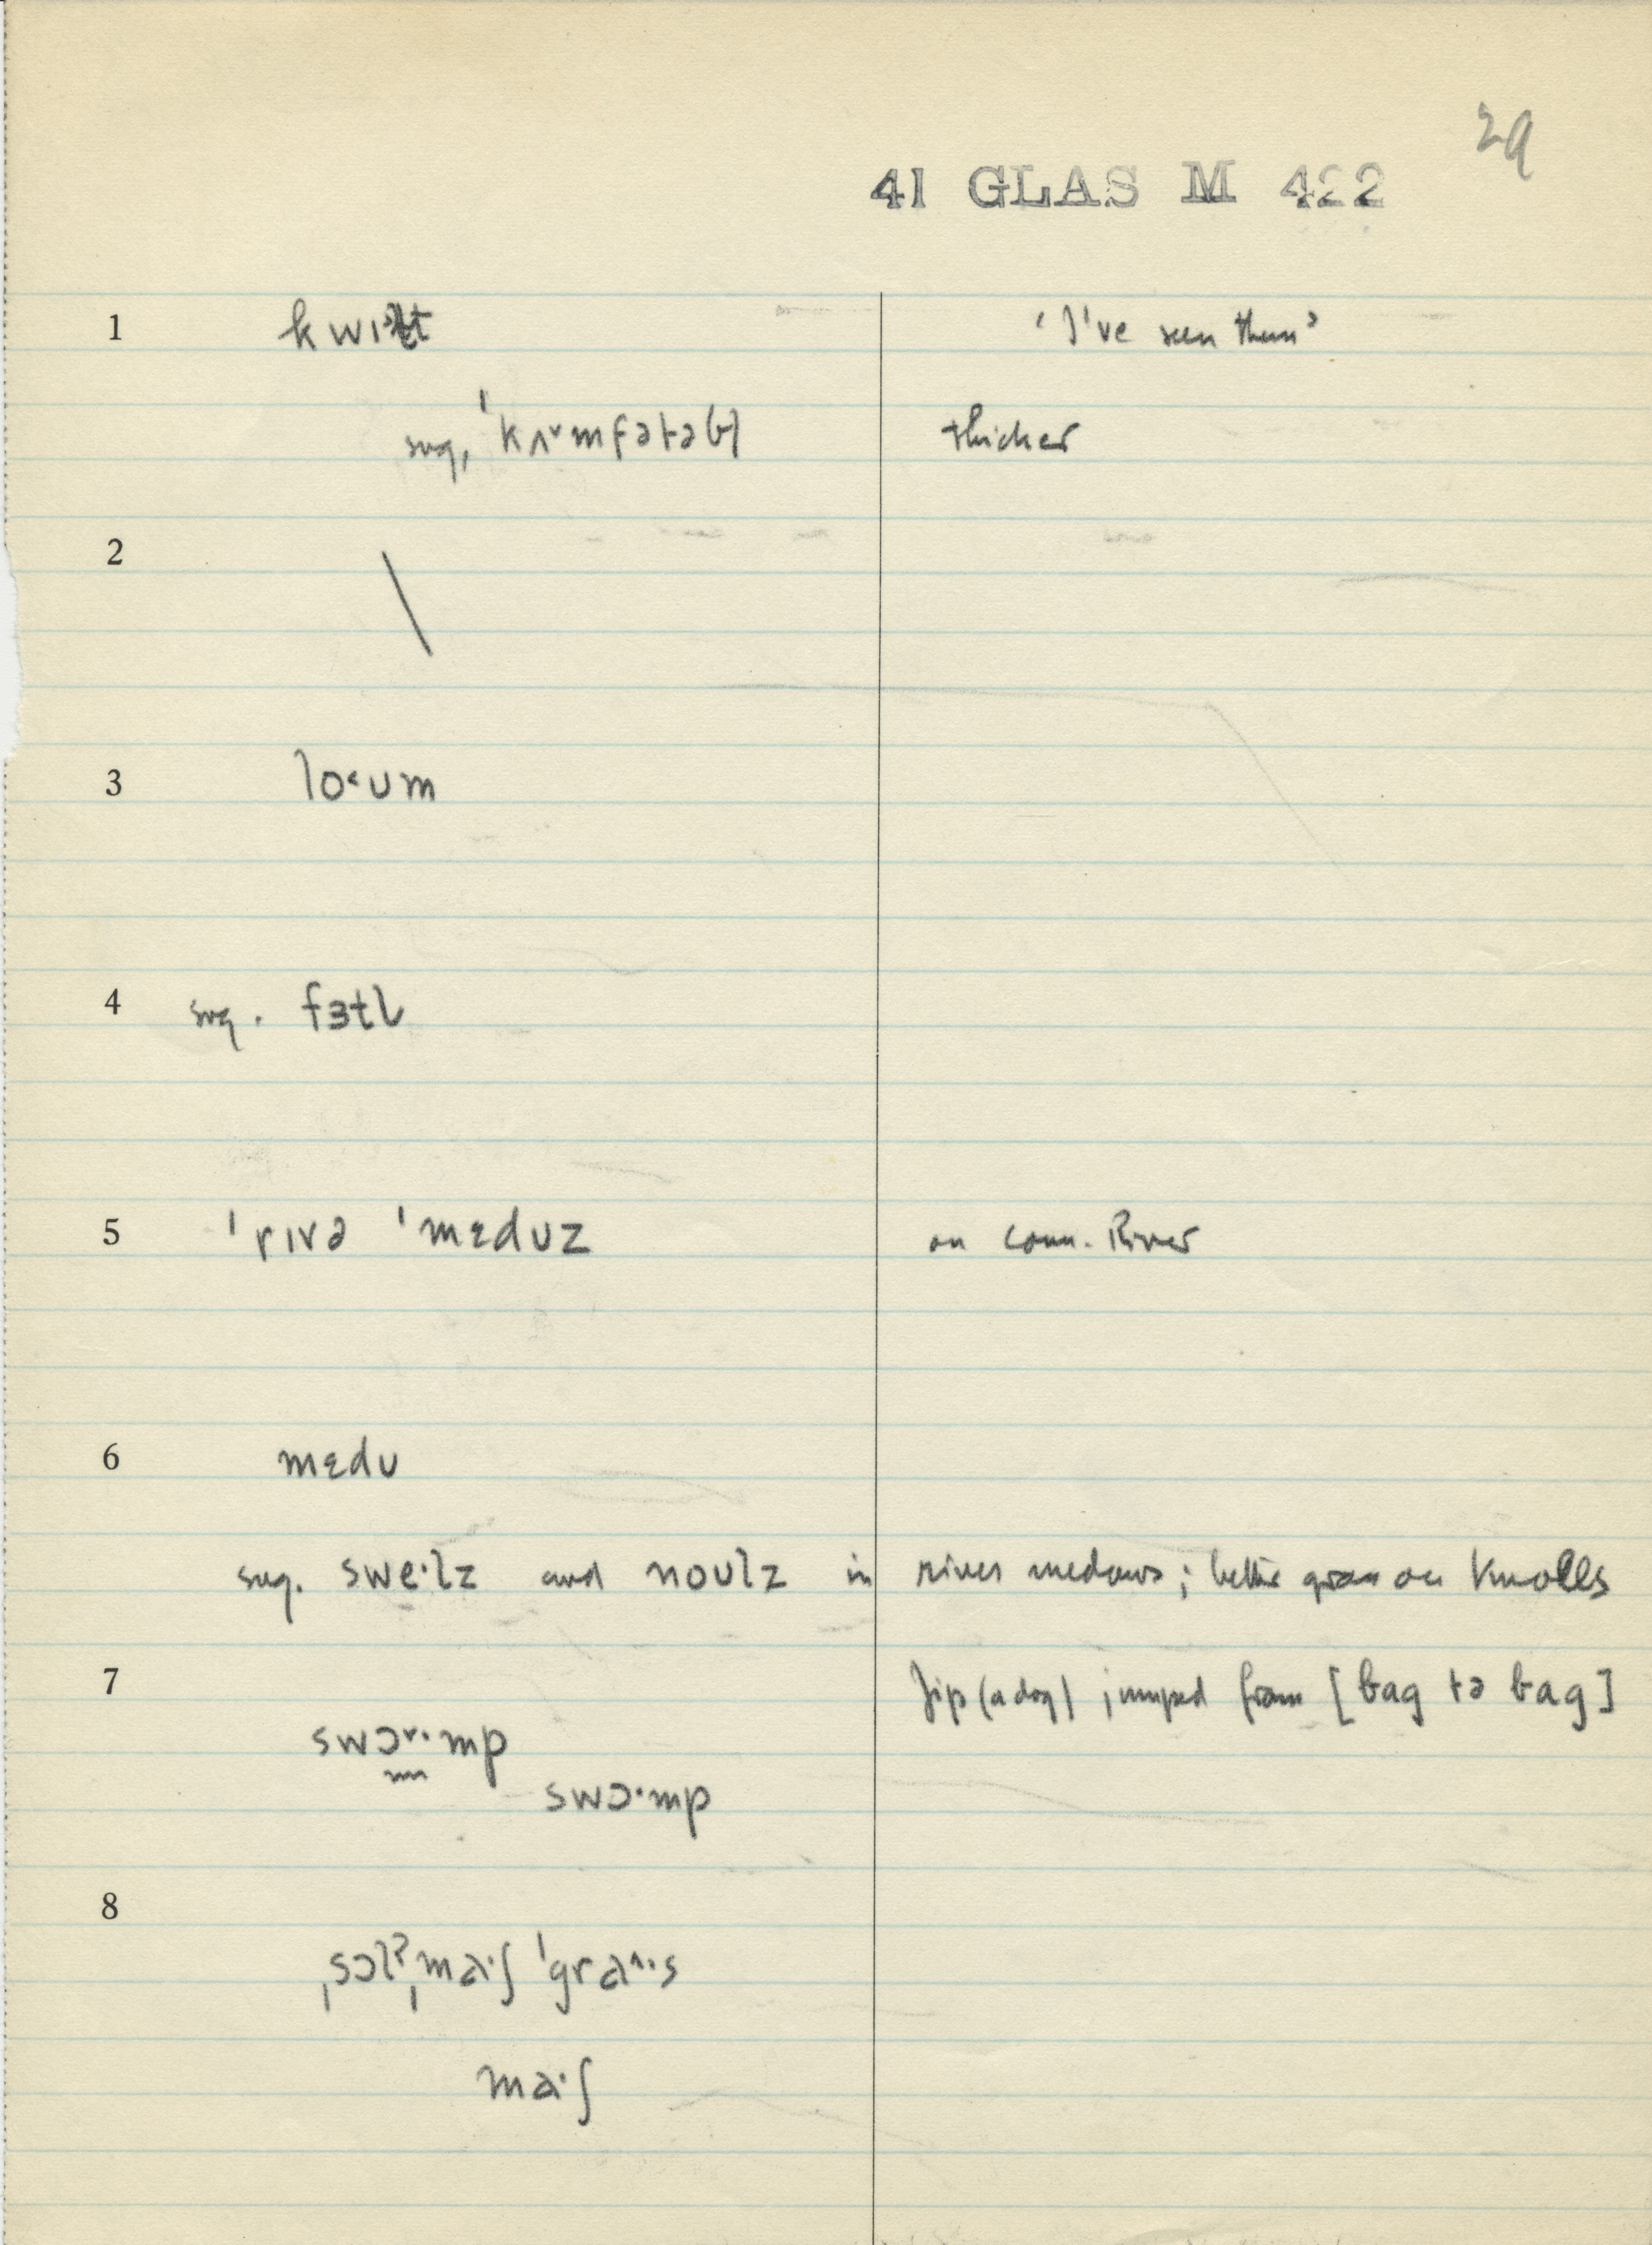 29
41 GLAS M 422
1 kwɪɫt 'I've seen them'
sug. ˈkʌ˅mfətəbl̩ thicker
2 \
3 lo˂ʊm
4 sug. fɜtl̩
5 ˈrɪvə ˈmɛdʊz on Conn. River
6 mɛdʊ
sug. swe·lz and noʊlz in river medows; better grass on Knolls
7 Jip (a dog) jumped from [bag tə bag]
swɔ˅·mp
swɔ·mp
8
ˌsɔlˀˌma·ʃ ˈgra˄·s
ma·ʃ